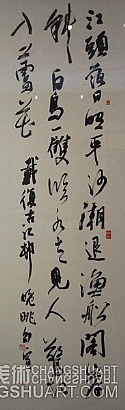 江頭落日照平沙潮退漁船閣岸
斜白鳥一雙臨水立見人驚起
入蘆花
戴復古江村晚眺